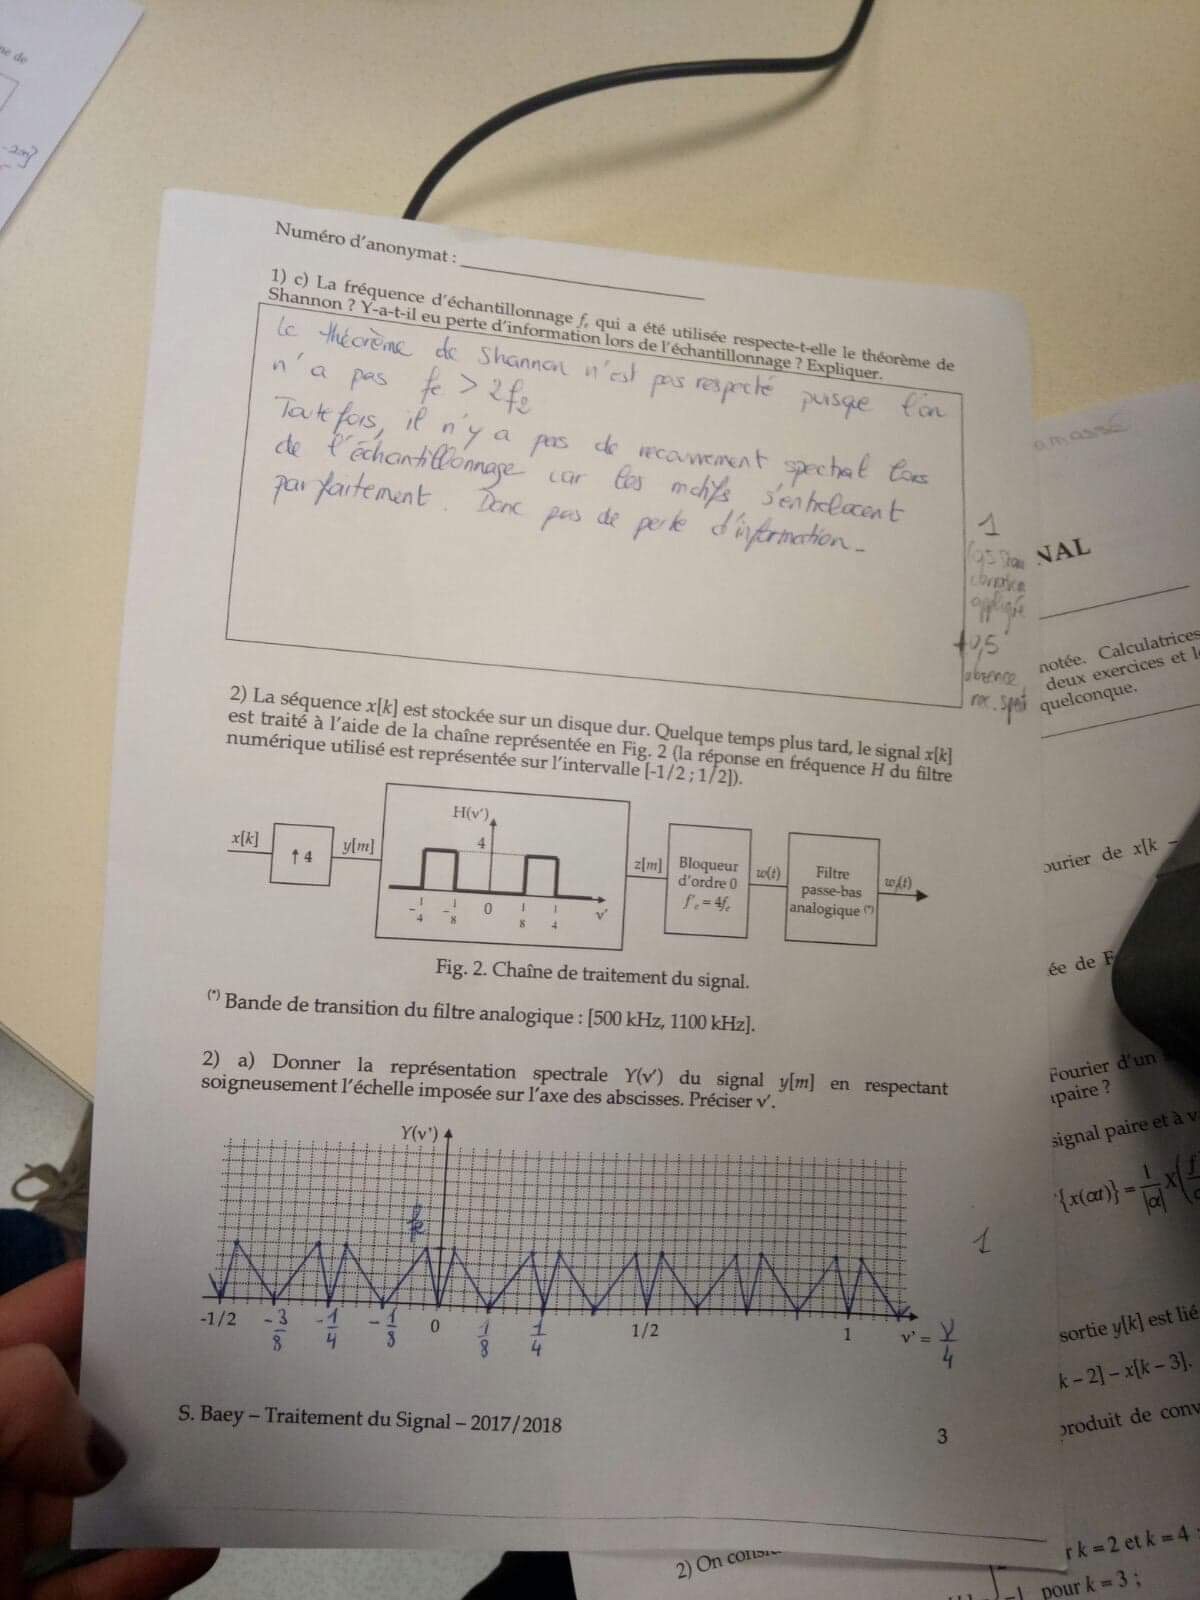 ne de
Numéro d'anonymat :
1) c) La fréquence d'échantillonnage fe qui a été utilisée respecte-t-elle le théorème de
Shannon ? Y-a-t-il eu perte d'information lors de l'échantillonnage ? Expliquer.
Le théorème de Shannon n'est pas respecté puisque l'on
n'a pas fe > 2f2
Toutefois, il n'y a pas de recouvrement spectral lors
de l'échantillonnage car les motifs s'entrelacent
parfaitement. Donc pas de perte d'information.
1
appliquée
+0,5
absence
rec. spect
2) La séquence x[k] est stockée sur un disque dur. Quelque temps plus tard, le signal x[k]
est traité à l'aide de la chaîne représentée en Fig. 2 (la réponse en fréquence H du filtre
numérique utilisé est représentée sur l'intervalle [-1/2 ; 1/2]).
x[k]
↑ 4
y[m]
H(ν')
4
-1/4 -1/8 0 1/8 1/4 ν'
z[m]
Bloqueur
d'ordre 0
f'e = 4fe
w(t)
Filtre
passe-bas
analogique (*)
Fig. 2. Chaîne de traitement du signal.
(*) Bande de transition du filtre analogique : [500 kHz, 1100 kHz].
2) a) Donner la représentation spectrale Y(ν') du signal y[m] en respectant
soigneusement l'échelle imposée sur l'axe des abscisses. Préciser ν'.
Y(ν')
1
-1/2 -3/8 -1/4 -1/8 0 1/8 1/4 1/2 1 ν' = ν/4
S. Baey – Traitement du Signal – 2017/2018
3
amassé
NAL
notée. Calculatrices
deux exercices et l
quelconque.
ourier de x[k –
ée de F
Fourier d'un
paire ?
signal paire et à v
{x(αt)} = 1/|α| X(
sortie y[k] est lié
k – 2] – x[k – 3].
produit de conv
r k = 2 et k = 4
2) On consi
pour k = 3 ;